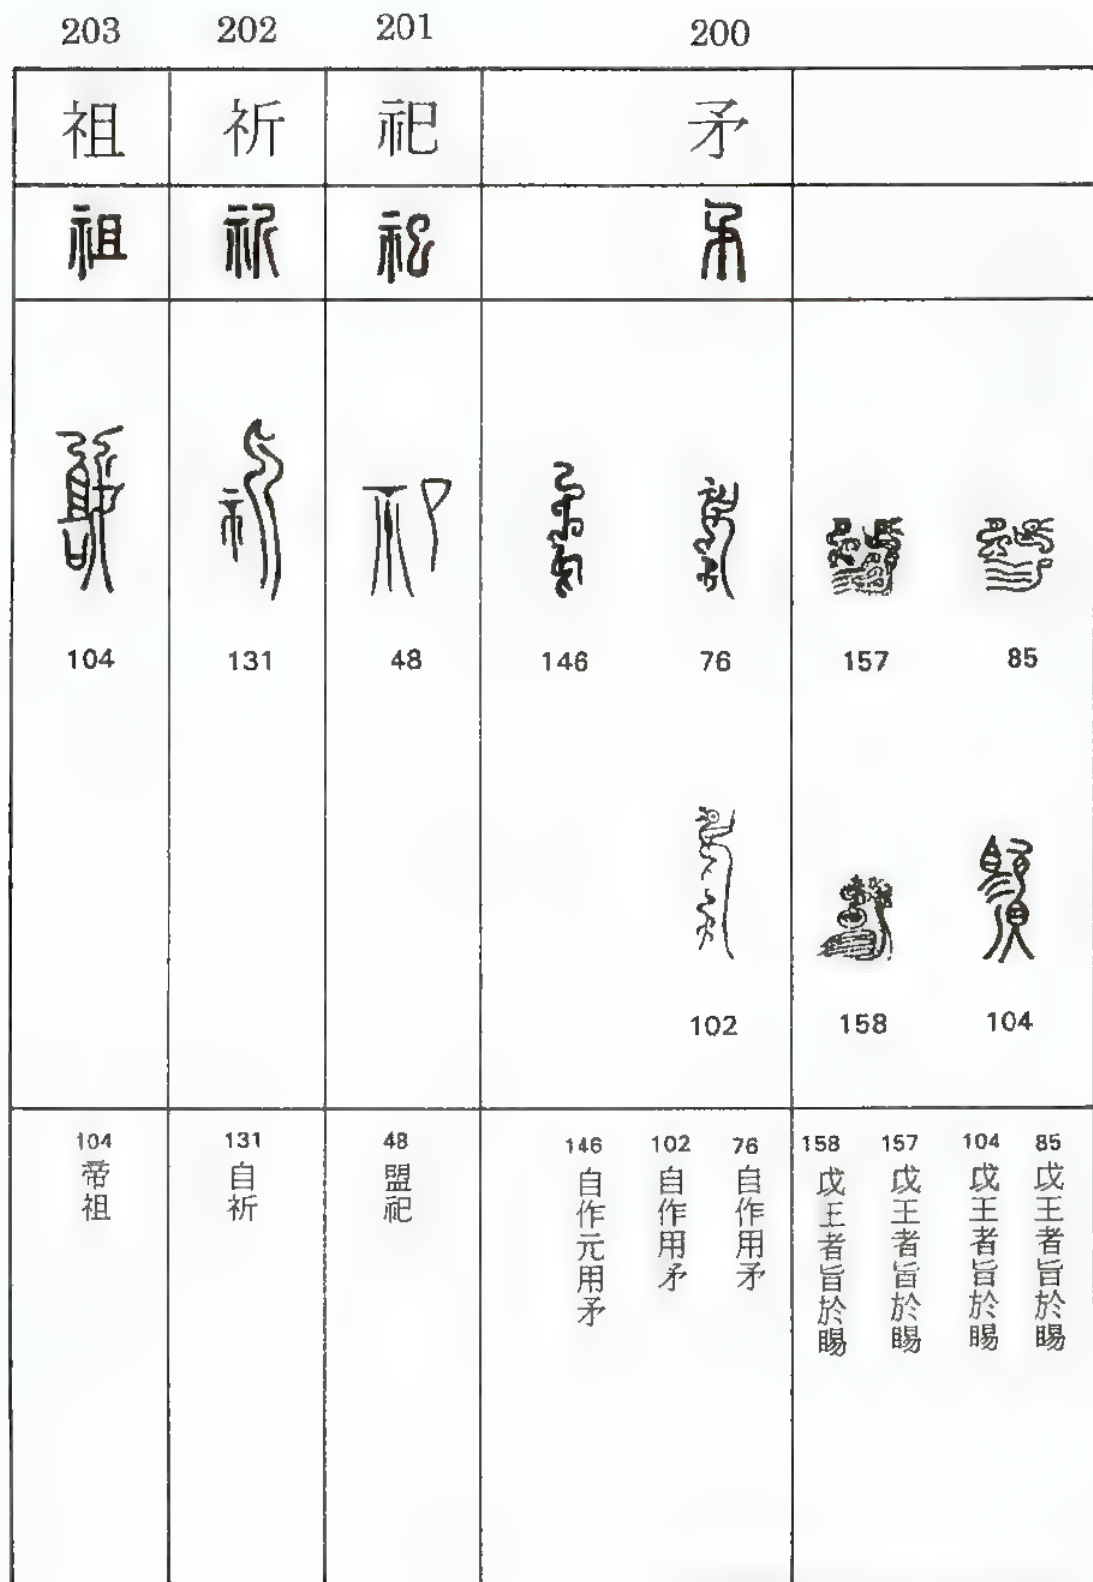 203 202 201 200
祖 祈 祀 矛
104 131 48 146 76 157 85
102 158 104
85 戉王者旨於賜
104 戉王者旨於賜
157 戉王者旨於賜
158 戉王者旨於賜
76 自作用矛
102 自作用矛
146 自作元用矛
48 盟祀
131 自祈
104 帝祖